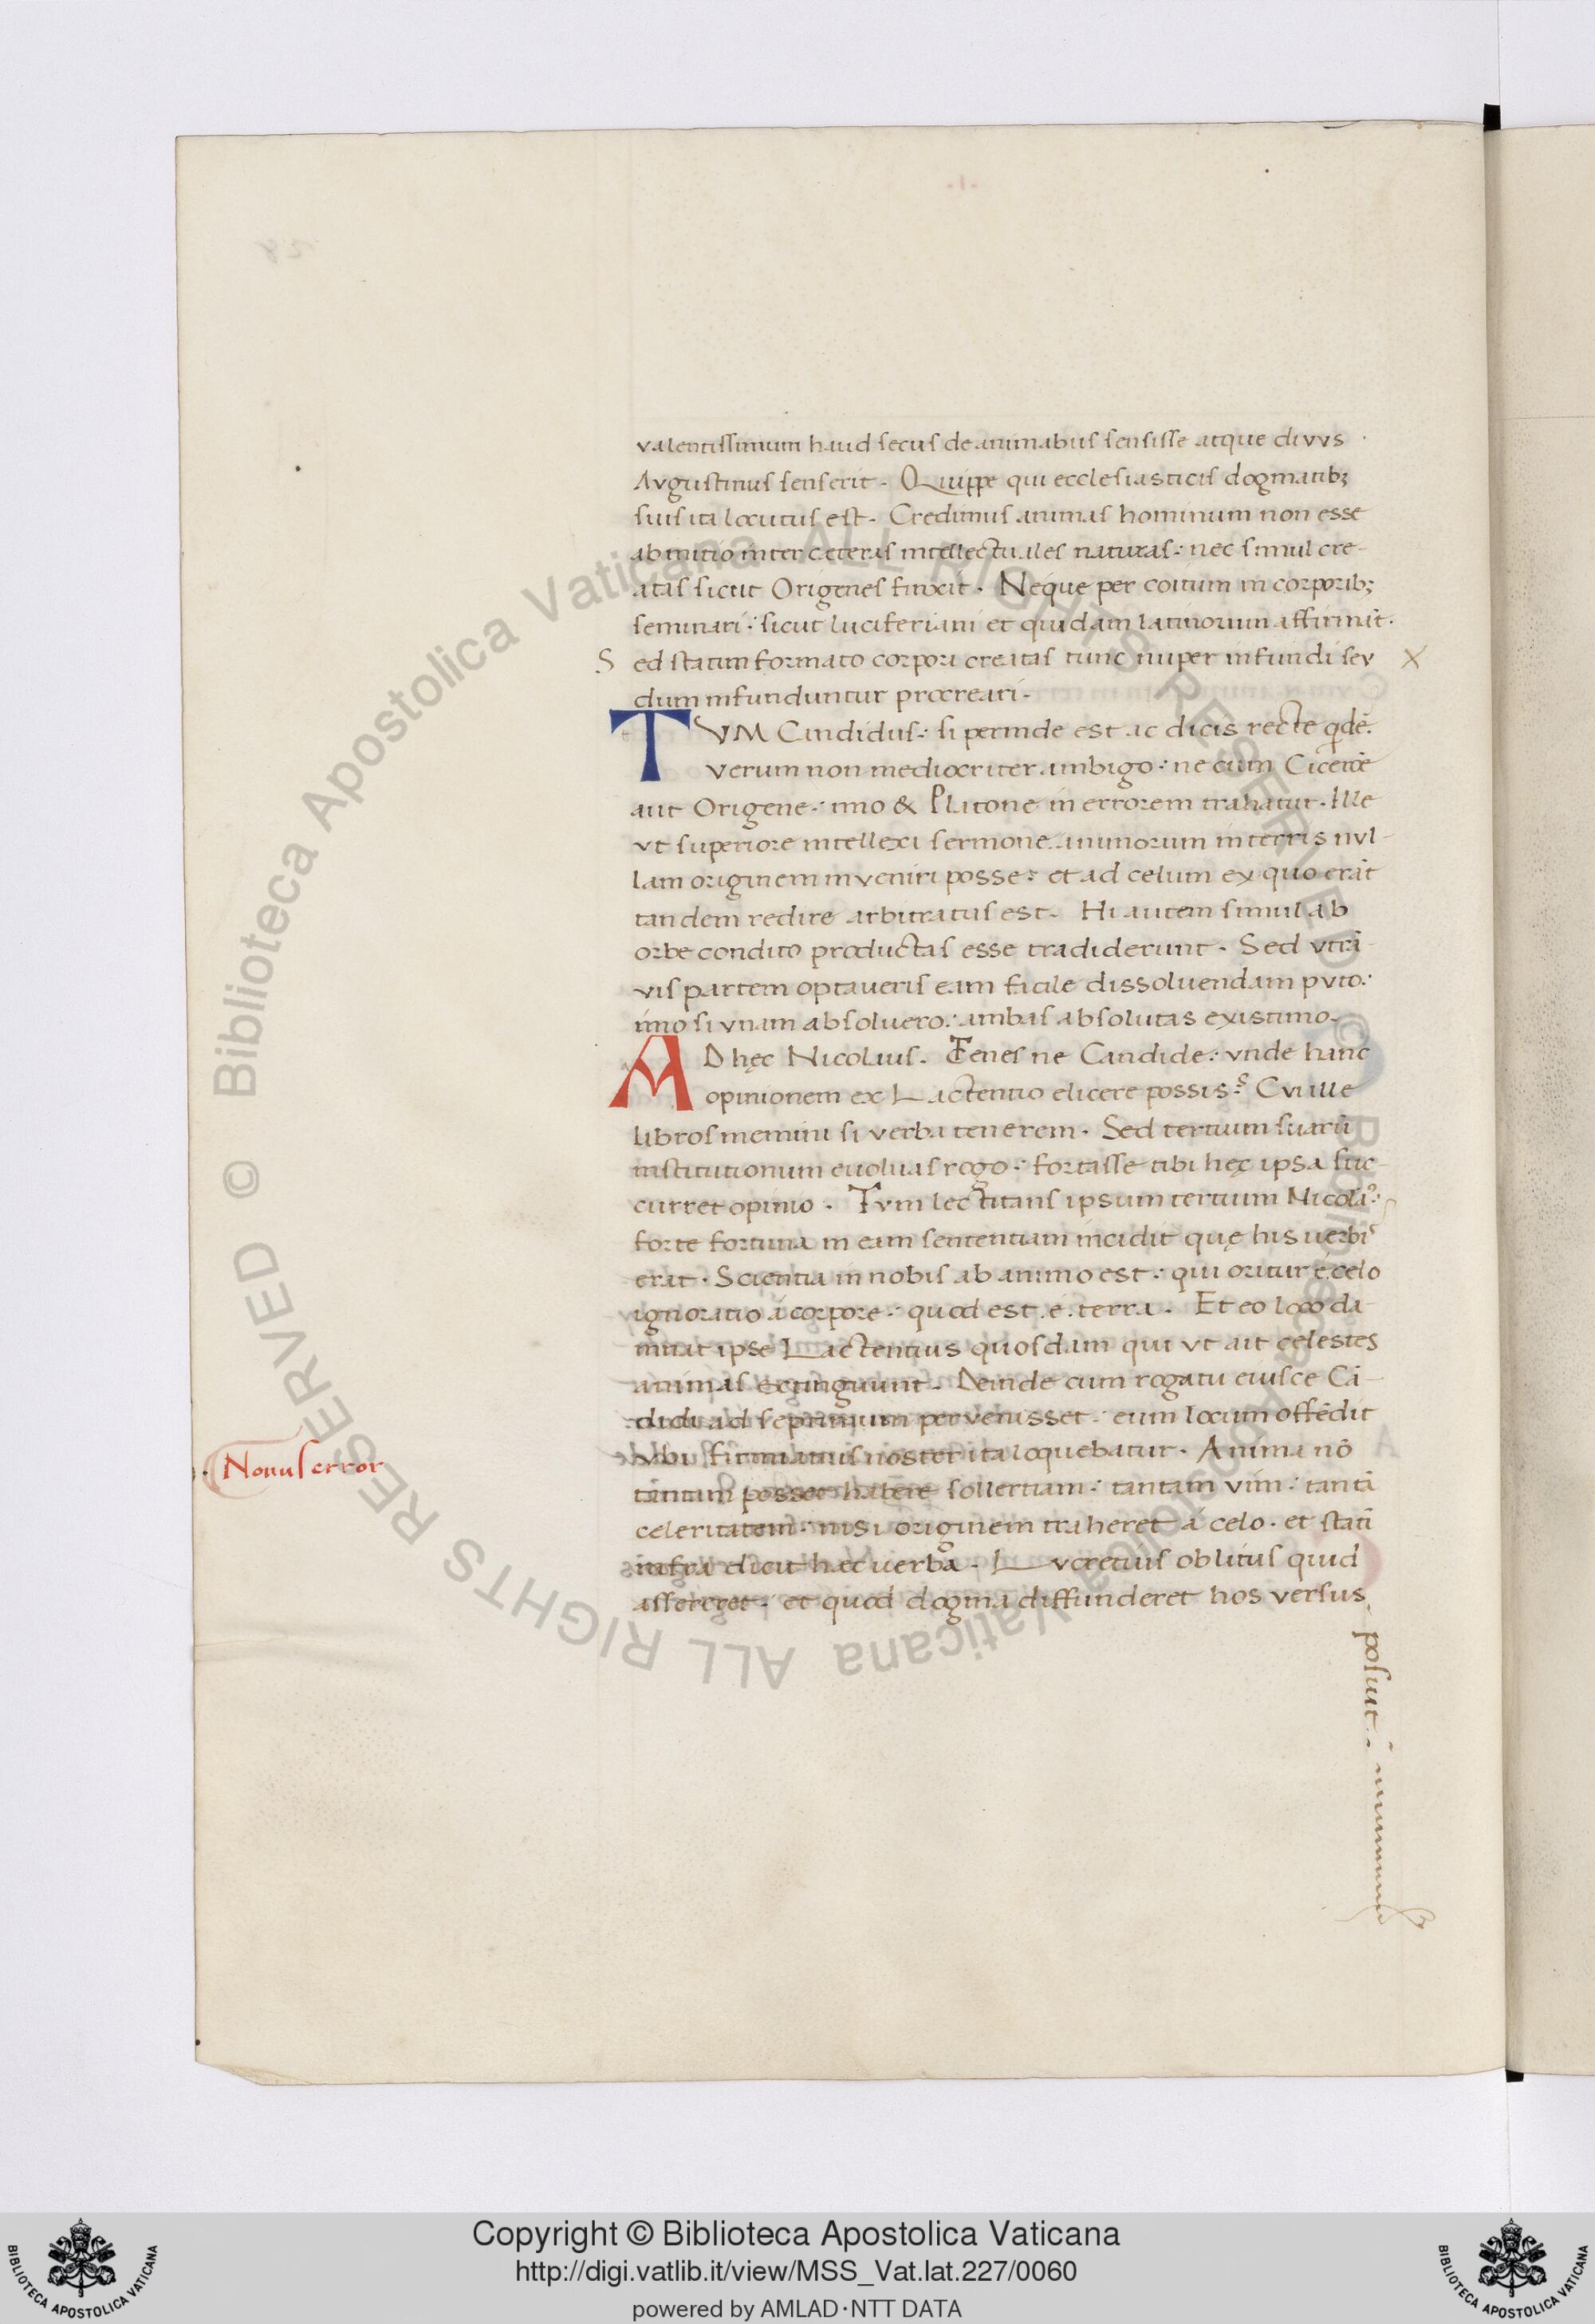 valentissimum haud secus de animabus sensisse atque divvs
Avgustinus senserit. Quippe qui ecclesiasticis dogmatib;
suis ita locutus est. Credimus animas hominum non esse
ab initio inter ceteras intellectuales naturas: nec simul cre-
atas sicut Origenes finxit. Neque per coitum in corporib;
seminari: sicut luciferiani et quidam latinorum affirmāt.
Sed statim formato corpori creatas tunc nuper infundi sev X
dum infunduntur procreari.
TVM Candidus: si perinde est ac dicis recte qdē:
verum non mediocriter ambigo: ne cum Cicerōe
aut Origene: imo & Platone in errorem trahatur. Ille
vt superiore intellexi sermone animorum in terris nvl-
lam originem inveniri posse: et ad celum ex quo erāt
tandem redire arbitratus est. Hi autem simul ab
orbe condito productas esse tradiderunt. Sed vtrā-
vis partem optaueris eam facile dissoluendam pvto:
imo si vnam absoluero: ambas absolutas existimo.
AD hęc Nicolaus. Tenes ne Candide: vnde hanc
opinionem ex Lactentio elicere possis? Cvi ille
libros memini si verba tenerem. Sed tertium suarū
institutionum euoluas rogo: fortasse tibi hęc ipsa suc-
curret opinio. Tvm lectitans ipsum tertium Nicola9:
forte fortuna in eam sententiam incidit quę his uerbis
erat. Scientia in nobis ab animo est: qui oritur é celo
ignoratio á corpore: quod est .é. terra. Et eo loco da-
mnat ipse Lactentius quosdam qui vt ait celestes
animas extinguunt. Deinde cum rogatu eiusce Cā-
didi ad septimum pervenisset: eum locum offēdit
Vbi firmianus noster ita loquebatur. Anima nō
tantam posset habere sollertiam: tantam vim: tantā
celeritatem: nisi originem traheret á celo. et statī
infra dicit haec uerba. Lvcretius oblitus quid
assereret: et quod dogma diffunderet hos versus
posuit.
Nonus error
Biblioteca Apostolica Vaticana ALL RIGHTS RESERVED ©
Biblioteca Apostolica Vaticana ALL RIGHTS RESERVED ©
Copyright © Biblioteca Apostolica Vaticana
http://digi.vatlib.it/view/MSS_Vat.lat.227/0060
powered by AMLAD·NTT DATA
BIBLIOTECA APOSTOLICA VATICANA
BIBLIOTECA APOSTOLICA VATICANA